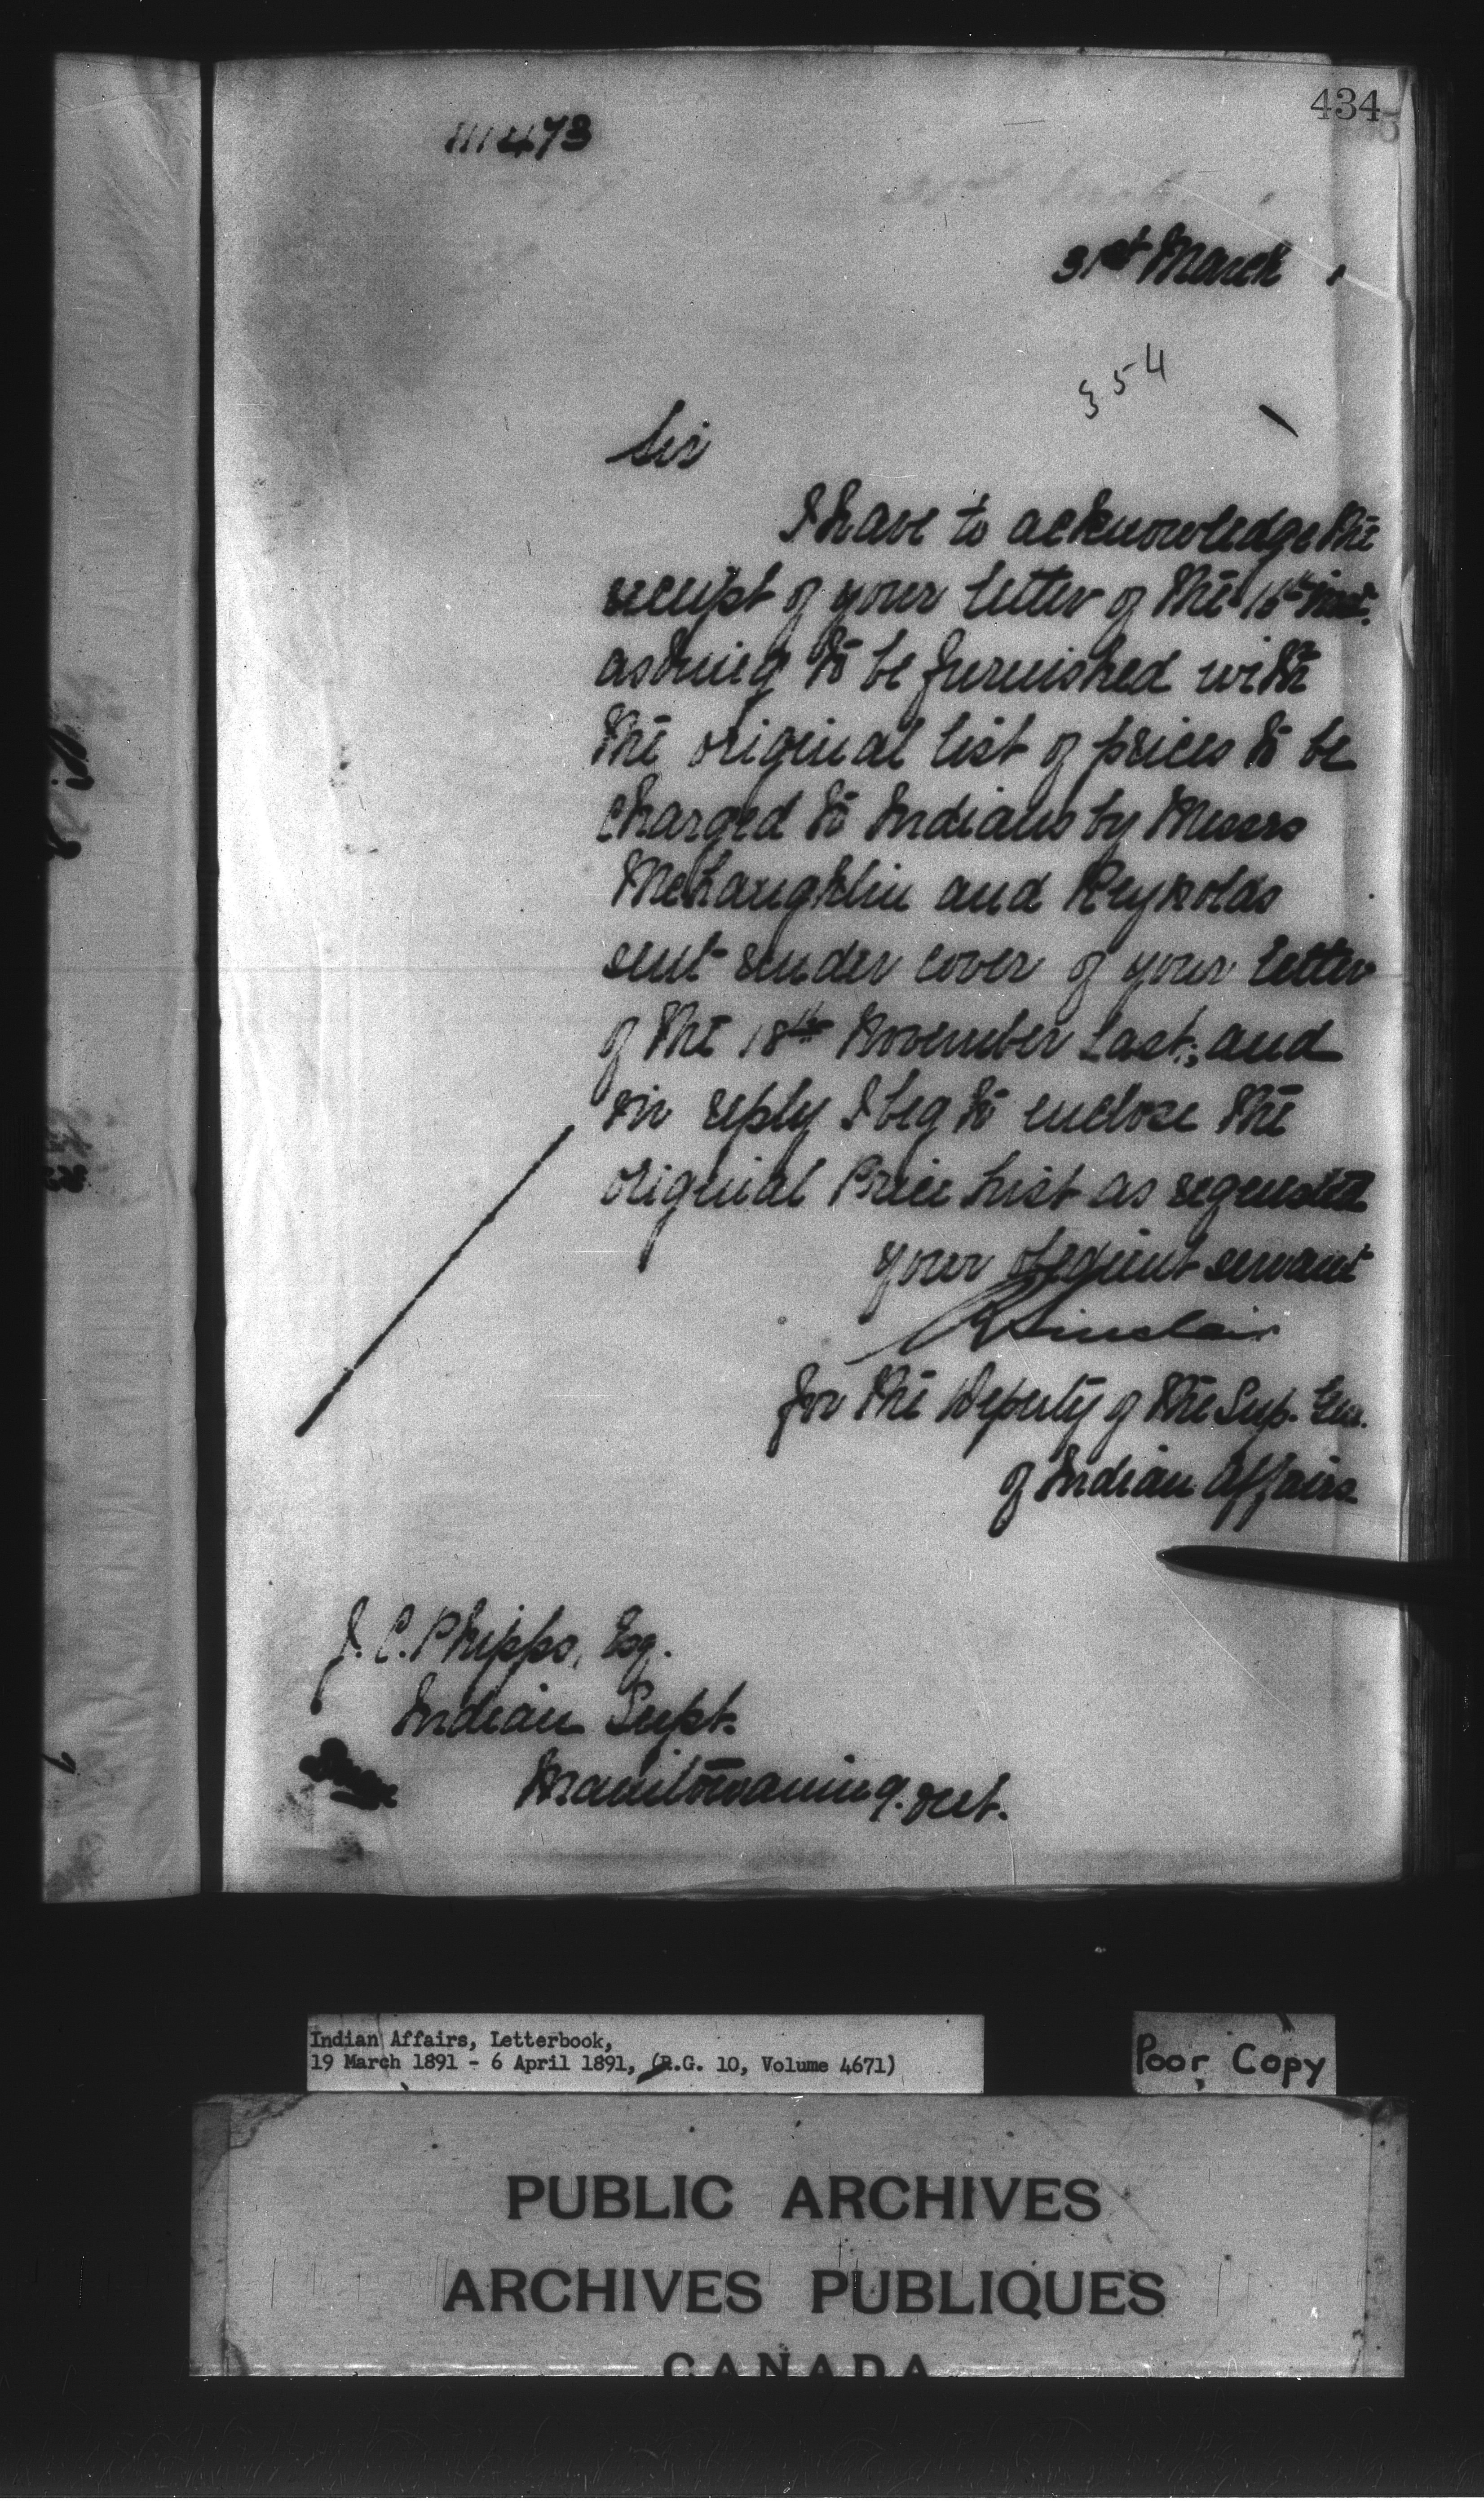 434
111473
31st March 1
354
Sir
I have to acknowledge the
receipt of your letter of the 16th inst.
asking to be furnished with
the original list of prices to be
charged to Indians by Messrs
McLaughlin and Reynolds
sent under cover of your letter
of the 18th November last; and
in reply I beg to enclose the
original Price List as requested
your obedient servant
R Sinclair
for the Deputy of the Sup. Gen.
of Indian Affairs
J. C. Phipps, Esq.
Indian Supt.
Manitowaning. Ont.
Indian Affairs, Letterbook,
19 March 1891 - 6 April 1891, (R.G. 10, Volume 4671)
Poor Copy
PUBLIC ARCHIVES
ARCHIVES PUBLIQUES
CANADA